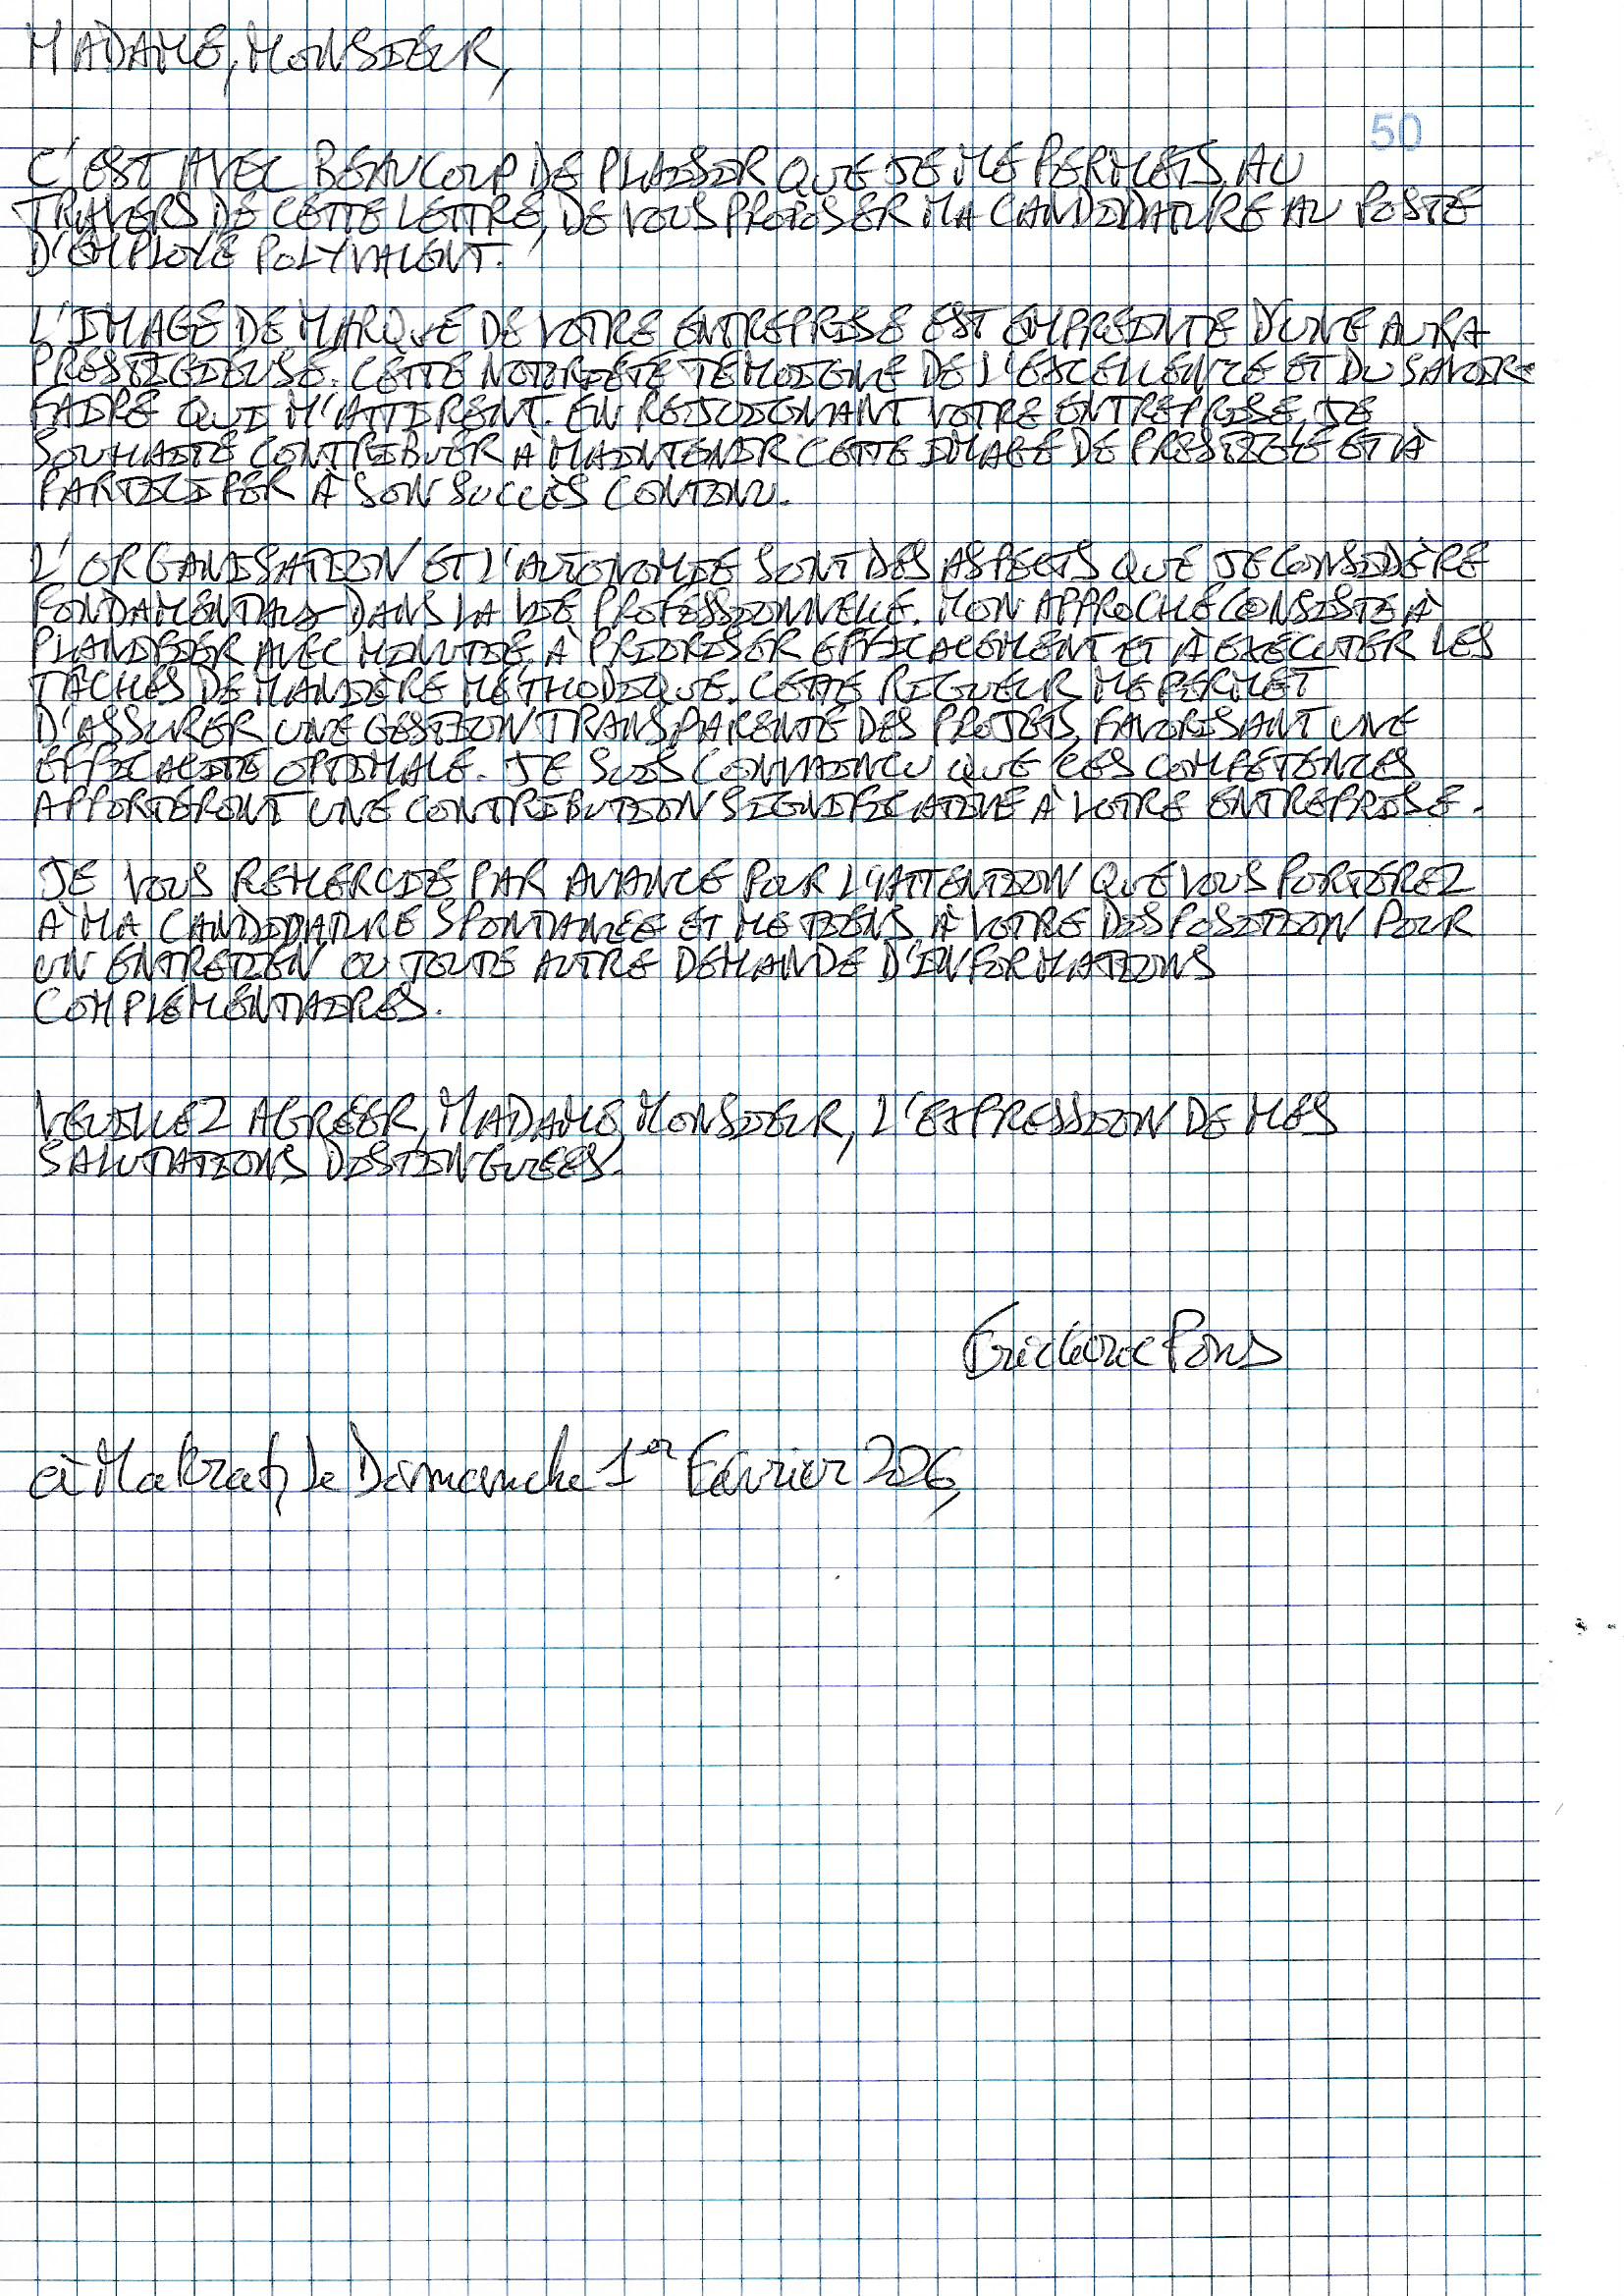 MADAME, MONSIEUR,
50
C'EST AVEC BEAUCOUP DE PLAISIR QUE JE ME PERMETS, AU
TRAVERS DE CETTE LETTRE, DE VOUS PROPOSER MA CANDIDATURE AU POSTE
D'EMPLOYÉ POLYVALENT.
L'IMAGE DE MARQUE DE VOTRE ENTREPRISE EST EMPREINTE D'UNE AURA
PRESTIGIEUSE. CETTE NOTORIÉTÉ TÉMOIGNE DE L'EXCELLENCE ET DU SAVOIR-
FAIRE QUI M'ATTIRENT. EN REJOIGNANT VOTRE ENTREPRISE, JE
SOUHAITE CONTRIBUER À MAINTENIR CETTE IMAGE DE PRESTIGE ET À
PARTICIPER À SON SUCCÈS CONTINU.
L'ORGANISATION ET L'AUTONOMIE SONT DES ASPECTS QUE JE CONSIDÈRE
FONDAMENTAUX DANS LA VIE PROFESSIONNELLE. MON APPROCHE CONSISTE À
PLANIFIER AVEC MINUTIE, À PRIORISER EFFICACEMENT ET À EXÉCUTER LES
TÂCHES DE MANIÈRE MÉTHODIQUE. CETTE RIGUEUR ME PERMET
D'ASSURER UNE GESTION TRANSPARENTE DES PROJETS, FAVORISANT UNE
EFFICACITÉ OPTIMALE. JE SUIS CONVAINCU QUE CES COMPÉTENCES
APPORTERONT UNE CONTRIBUTION SIGNIFICATIVE À VOTRE ENTREPRISE.
JE VOUS REMERCIE PAR AVANCE POUR L'ATTENTION QUE VOUS PORTEREZ
À MA CANDIDATURE SPONTANÉE ET ME TIENS À VOTRE DISPOSITION POUR
UN ENTRETIEN OU TOUTE AUTRE DEMANDE D'INFORMATIONS
COMPLÉMENTAIRES.
VEUILLEZ AGRÉER, MADAME, MONSIEUR, L'EXPRESSION DE MES
SALUTATIONS DISTINGUÉES.
Frédéric Pons
à, le Dimanche 1er Février 2026,